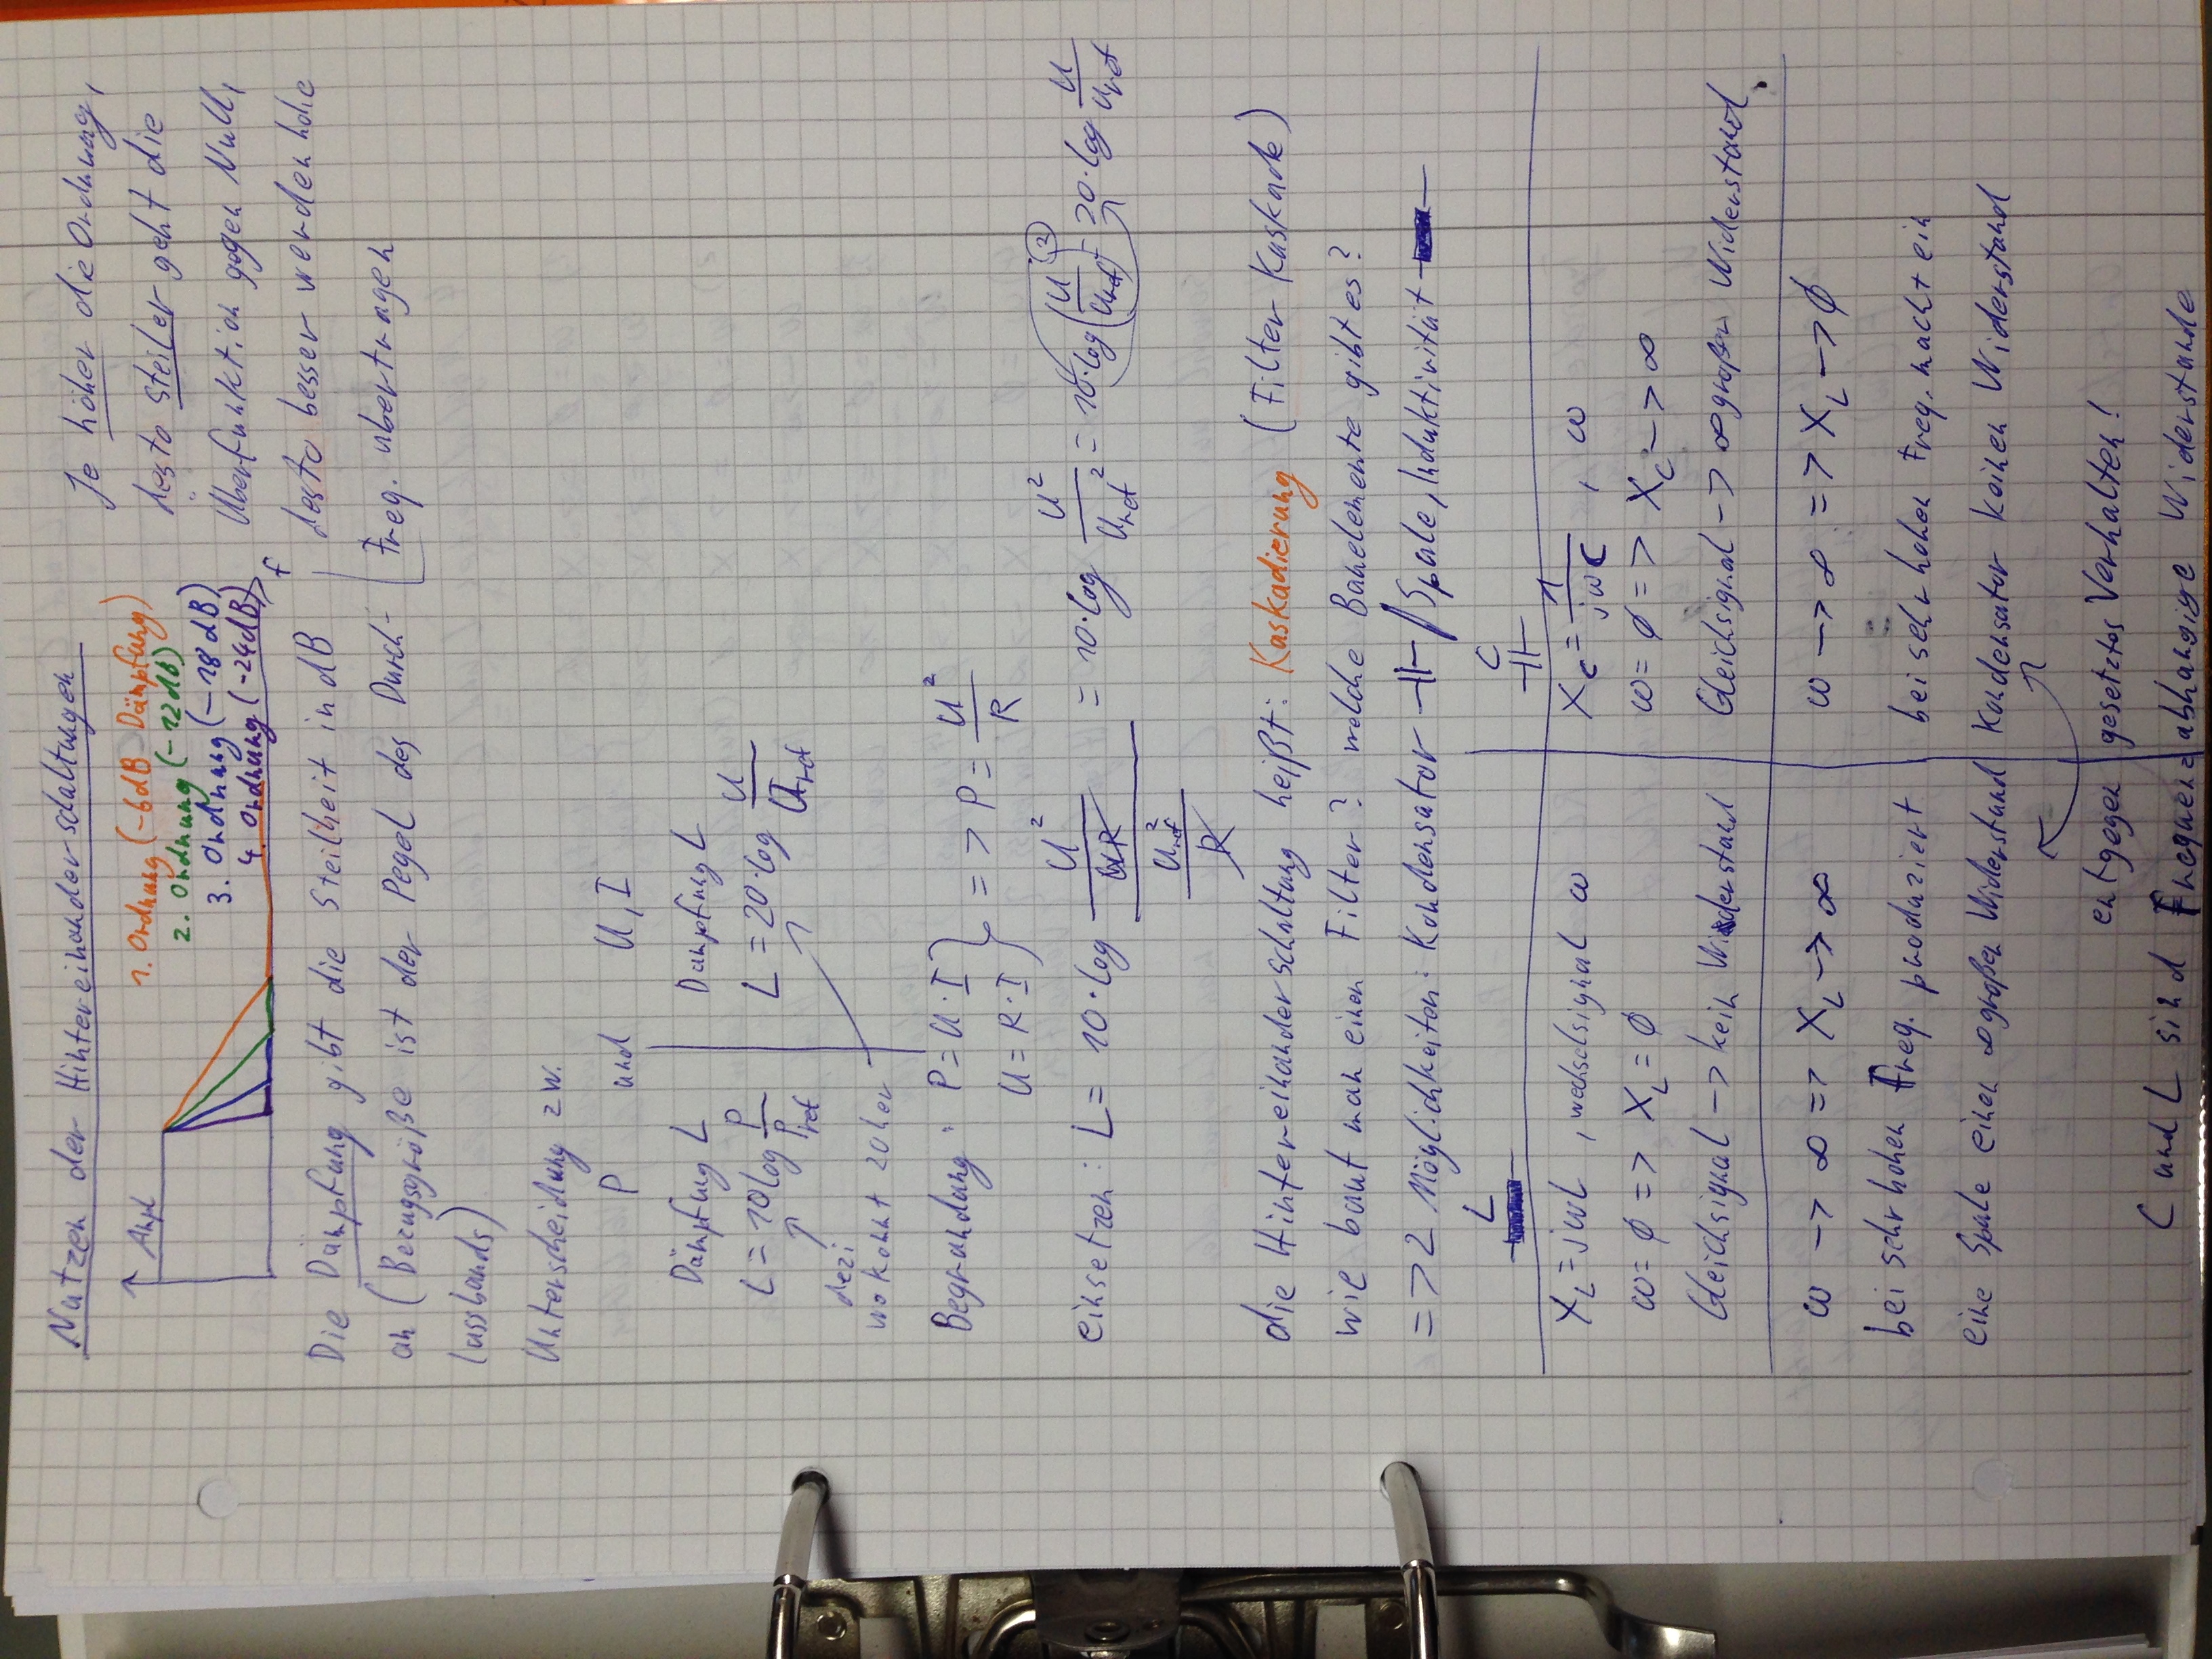 Nutzen der Hintereinanderschaltungen
Ampl
1. Ordnung (-6dB Dämpfung)
2. Ordnung (-12dB)
3. Ordnung (-18dB)
4. Ordnung (-24dB)
f
Je höher die Ordnung,
desto steiler geht die
Überfunktion gegen Null,
desto besser werden hohe
Freq. übertragen
Die Dämpfung gibt die Steilheit in dB
an (Bezugsgröße ist der Pegel des Durch-
lassbands)
Unterscheidung zw.
P und U, I
Dämpfung L
L = 10 log P/Pref
dezi
wo kommt 20 her
Dämpfung L
L = 20·log U/Uref
Begründung: P = U·I
U = R·I } => P = U²/R
einsetzen: L = 10·log (U²/R)/(Uref²/R) = 10·log U²/Uref² = 10·log (U/Uref)² = 20·log U/Uref
die Hintereinanderschaltung heißt: Kaskadierung (Filter Kaskade)
wie baut man einen Filter? welche Bauelemente gibt es?
=> 2 Möglichkeiten: Kondensator / Spule, Induktivität
L
X_L = jωL, wechselsignal ω
ω = ϕ => X_L = ϕ
Gleichsignal -> kein Widerstand
C
X_C = 1/jωC, ω
ω = ϕ => X_C -> ∞
Gleichsignal -> ∞ großen Widerstand
ω -> ∞ => X_L -> ∞
bei sehr hohen Freq. produziert
eine Spule einen ∞ großen Widerstand
ω -> ∞ => X_L -> ϕ
bei sehr hohen Freq. macht ein
Kondensator keinen Widerstand
entgegengesetztes Verhalten!
C und L sind Frequenzabhängige Widerstände